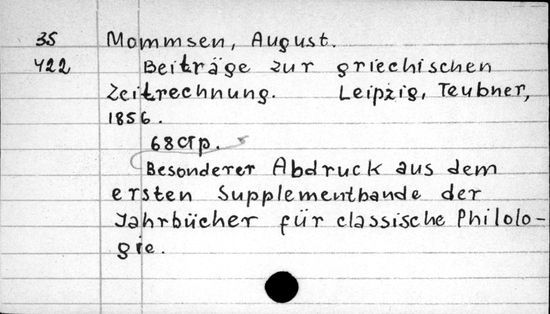 35 Mommsen, August.
422 Beiträge zur griechischen
Zeitrechnung. Leipzig, Teubner,
1856.
68 стр.
Besonderer Abdruck aus dem
ersten Supplementbande der
Jahrbücher für classische Philolo-
gie.